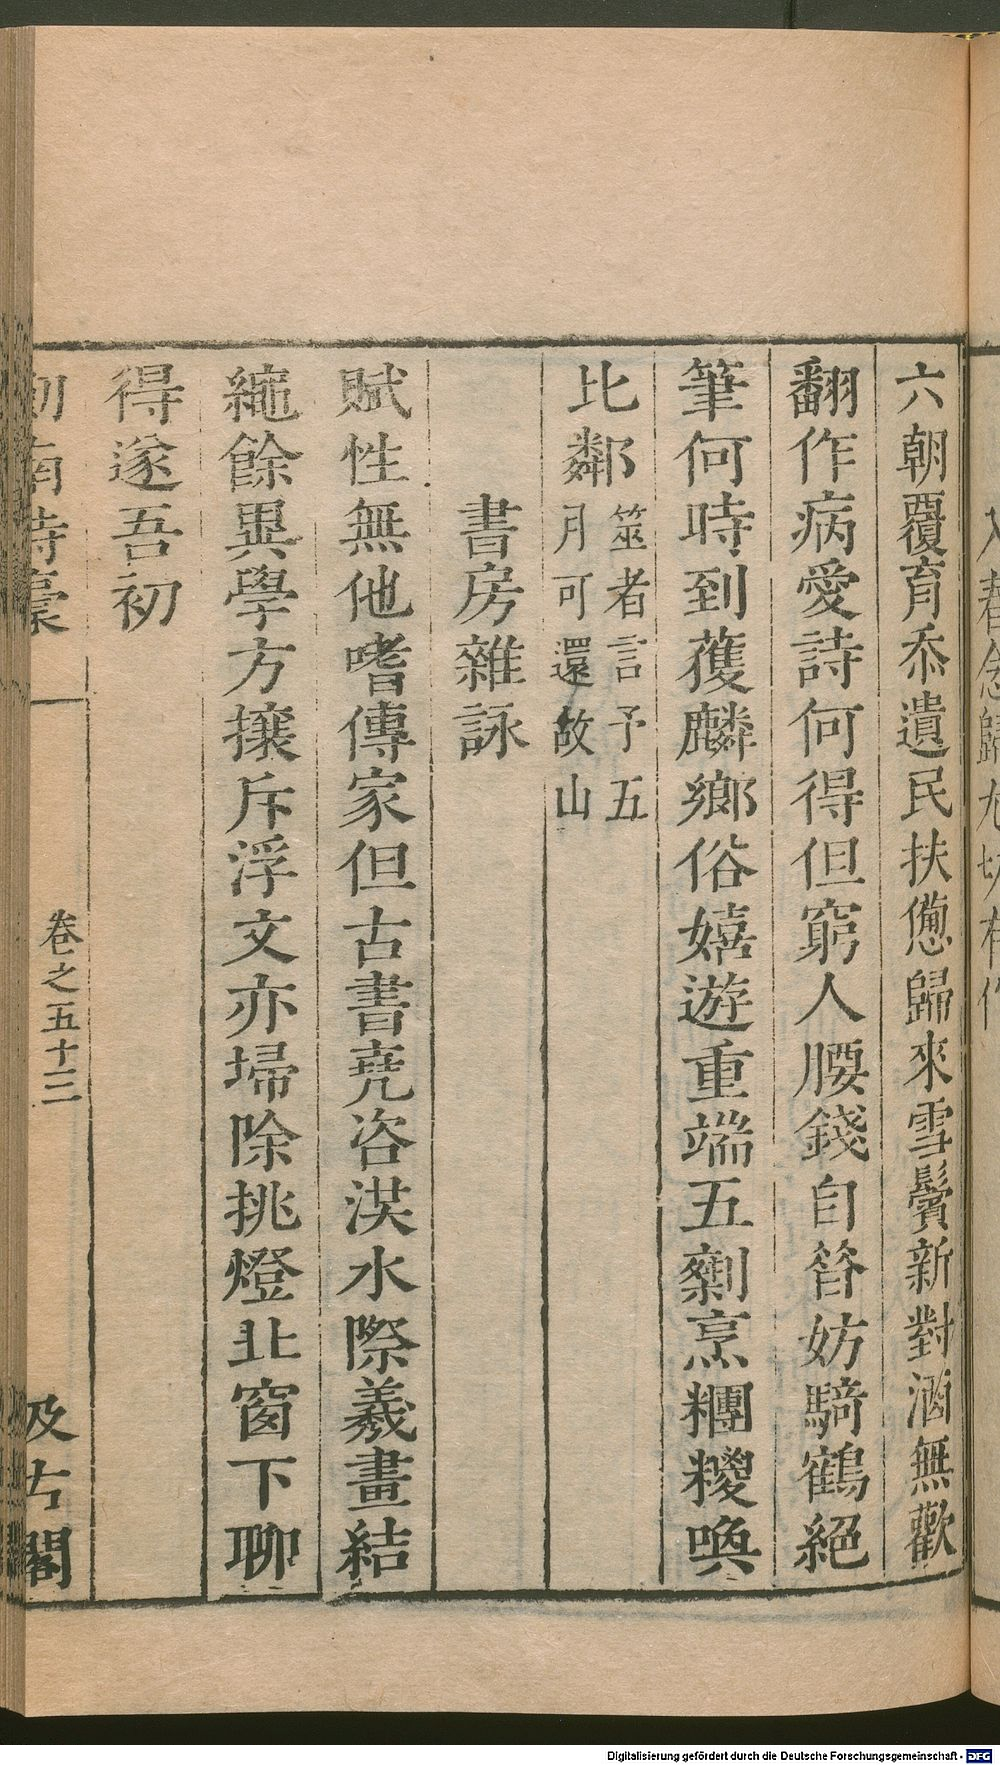 六朝覆育忝遺民扶憊歸來雪鬢新對酒無歡
翻作病愛詩何得但窮人腰錢自笞妨騎鶴絕
筆何時到蒦麟鄉俗嬉遊重端五劑烹糰糭喚
比鄰筮者言予五月可還故山
書房雜詠
賦性無他嗜傳家但古書堯咨洪水際羲畫結
繩餘異學方攘斥浮文亦埽除挑燈北窗下聊
得遂吾初
劍南詩稾
卷之五十三
汲古閣
Digitalisierung gefördert durch die Deutsche Forschungsgemeinschaft - DFG